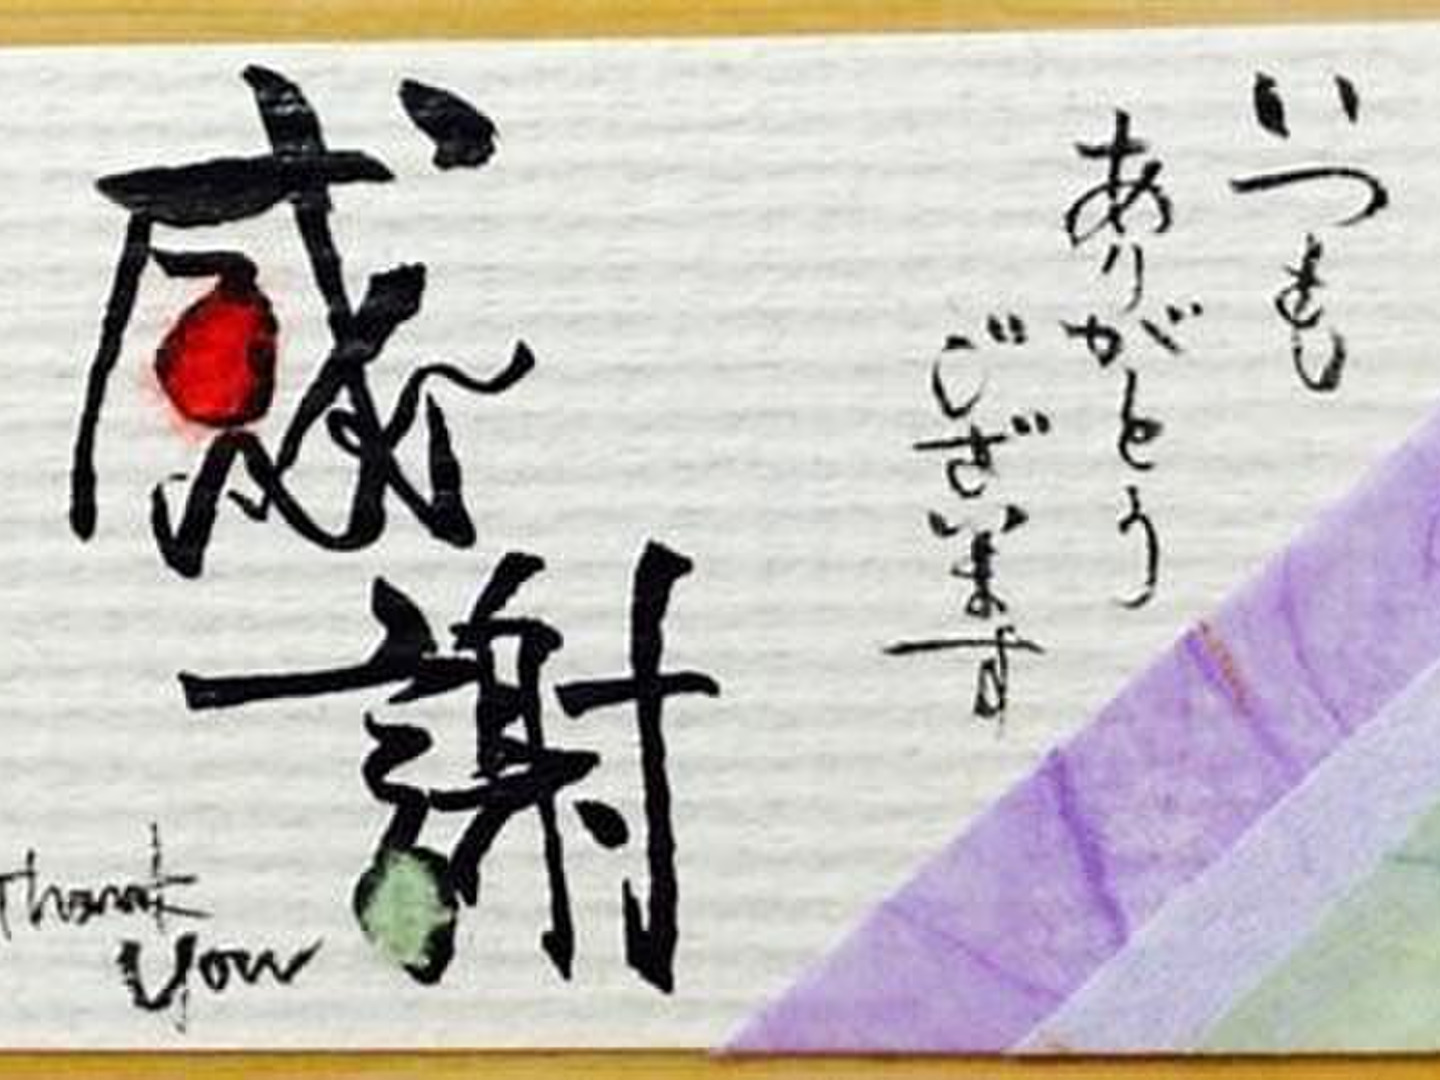 いつも
ありがとう
ございます
感謝
Thank
you